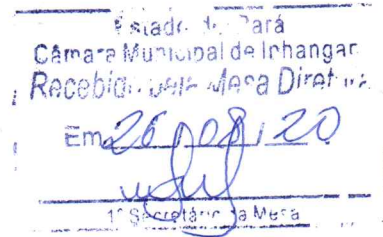 Estado do Pará
Câmara Municipal de Inhangap
Recebido pela Mesa Diretora
Em 26 / 08 / 20
1º Secretário da Mesa